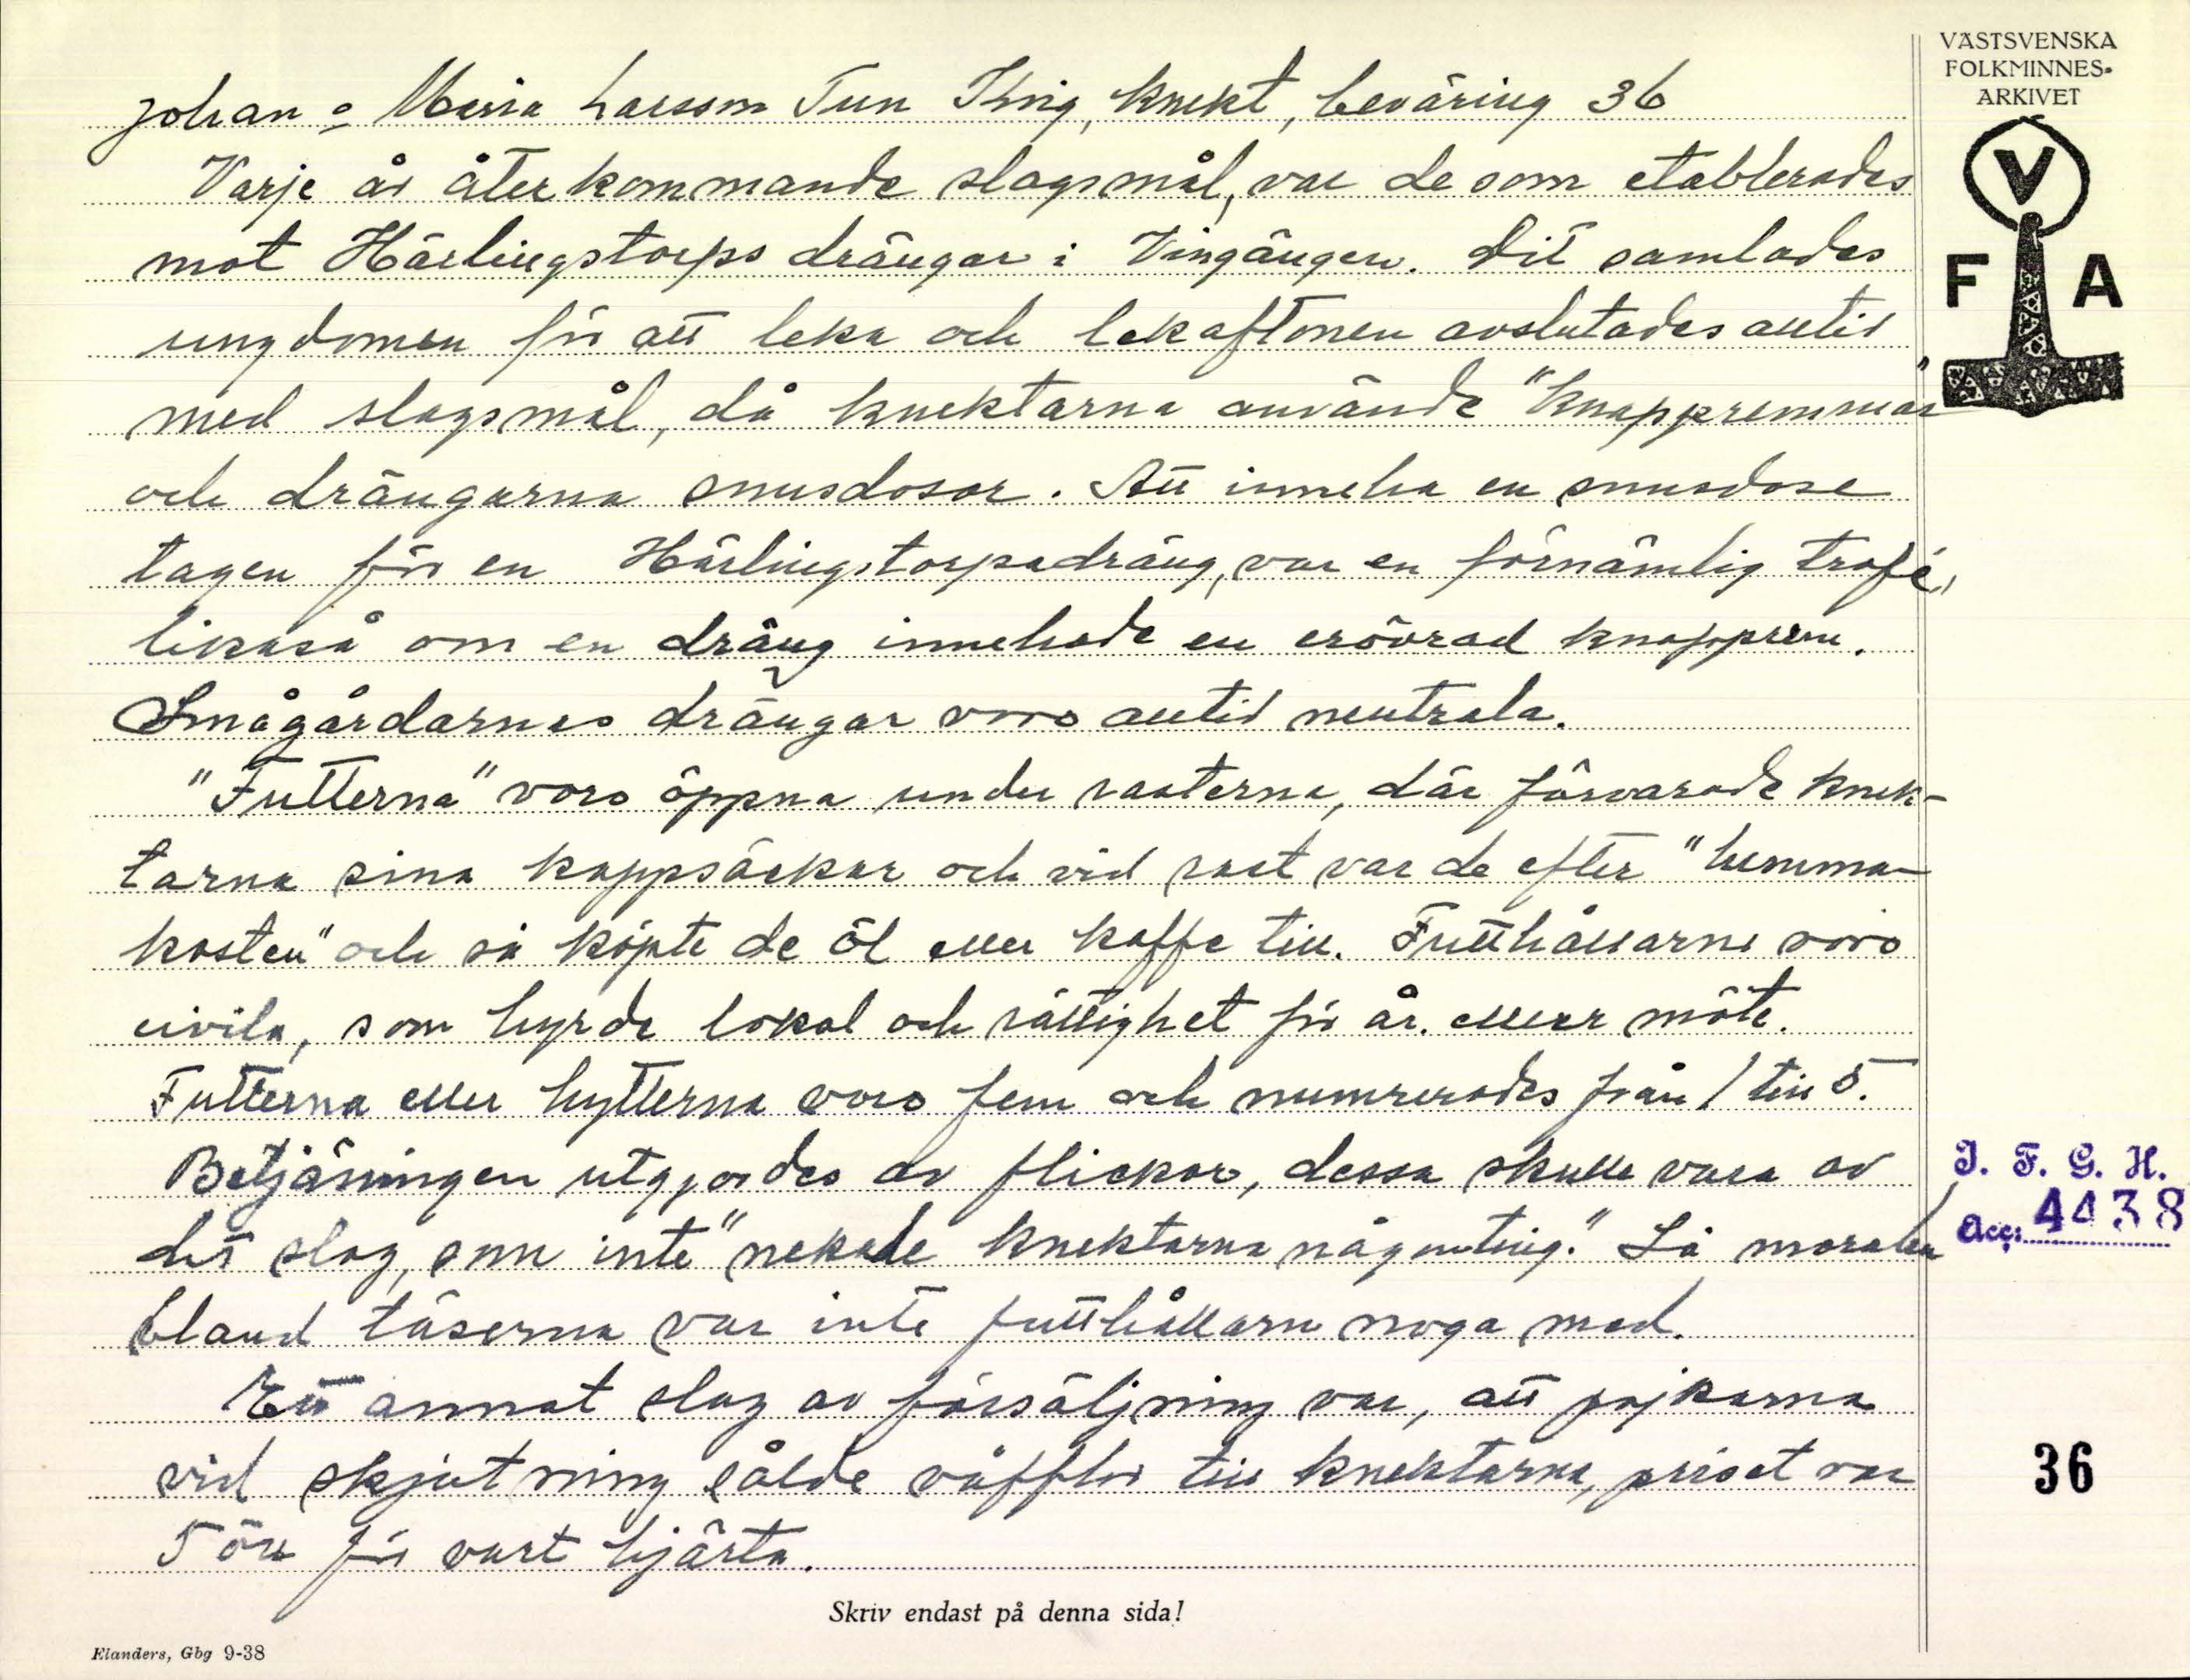 VÄSTSVENSKA
FOLKMINNES-
ARKIVET
V
F A
Johan o Maria Larsson Tun Krig, knekt, beväring 36
Varje år återkommande slagsmål, var de som etablerades
mot Härlingstorps drängar i Vingängen. Dit samlades
ungdomen för att leka och lekaftonen avslutades alltid
med slagsmål, då knektarna använde "knappremmar"
och drängarna snusdosor. Att inneha en snusdosa
tagen från en Härlingstorpsdräng, var en förnämlig trofé,
likaså om en dräng innehade en erövrad knapprem.
Smågårdarnas drängar voro alltid neutrala.
"Futterna" voro öppna under rasterna, där förvarade knek-
tarna sina kappsäckar och vid rast var de efter "hemma-
kosten" och så köpte de öl eller kaffe till. Futthållarna voro
civila, som hyrde lokal och rättighet för år. eller möte.
Futterna eller hytterna voro fem och numrerades från 1 till 5.
Betjäningen utgjordes av flickor, dessa skulle vara av
det slag, som inte "nekade knektarna någonting." Så moralen
bland töserna var inte futthållarn noga med.
Ett annat slag av försäljning var, att pojkarna
vid skjutning sålde våfflor till knektarna, priset var
5 öre för vart hjärta.
I. F. G. H.
Acc: 4438
36
Skriv endast på denna sida!
Elanders, Gbg 9-38